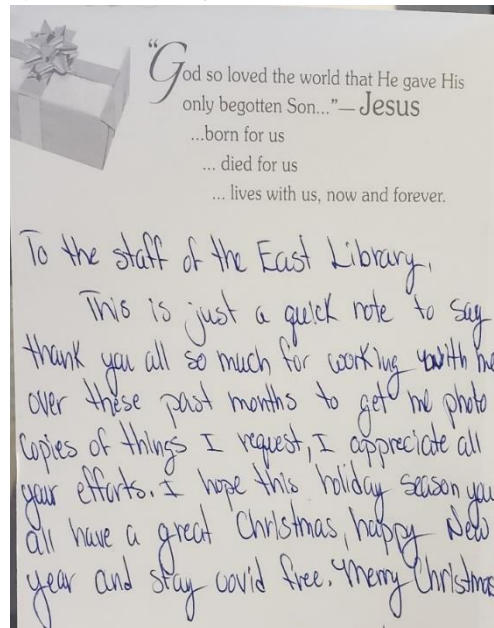 "God so loved the world that He gave His
only begotten Son..."—Jesus
...born for us
... died for us
... lives with us, now and forever.
To the staff of the East Library,
This is just a quick note to say
thank you all so much for working with me
over these past months to get me photo
copies of things I request, I appreciate all
your efforts. I hope this holiday season you
all have a great Christmas, happy New
year and stay covid free. Merry Christmas